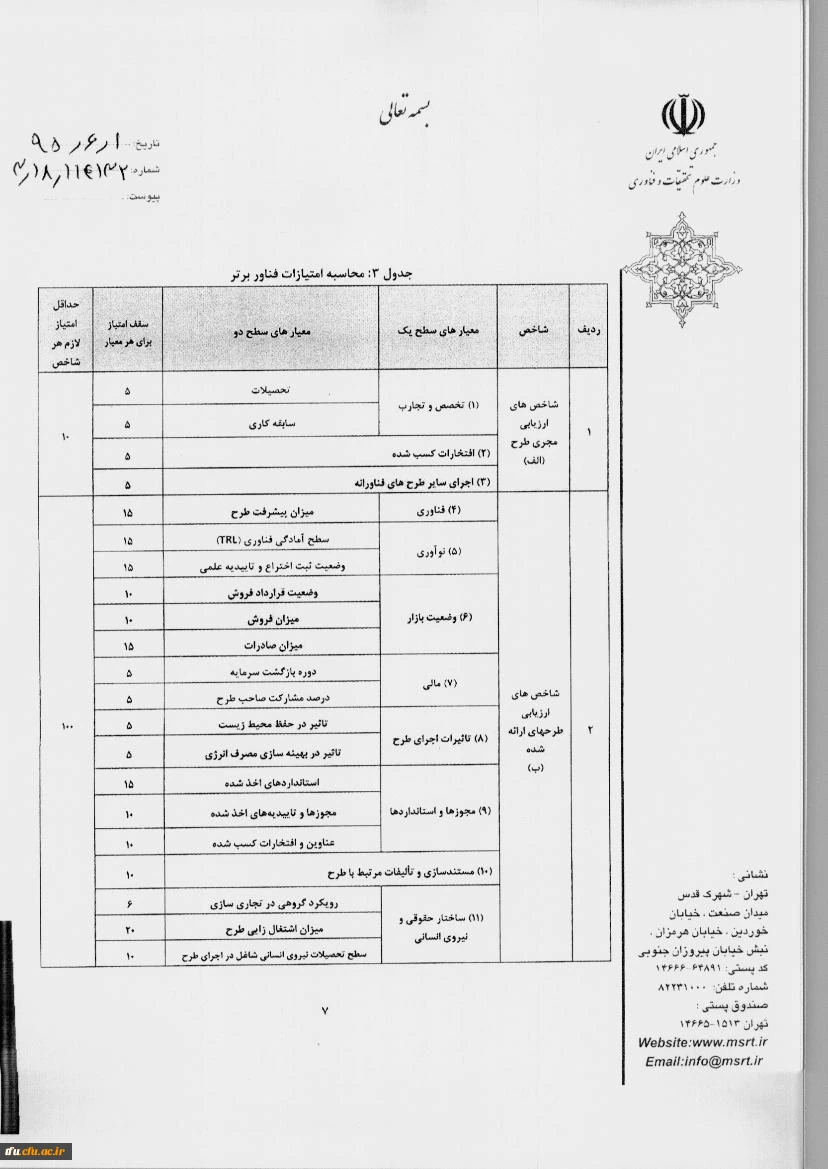 بسمه تعالی
جمهوری اسلامی ایران
وزارت علوم تحقیقات و فناوری
تاریخ: ۹۵/۶/۱
شماره: ۳/۱۸/۱۱۴۱۳۲
پیوست:
جدول ۳: محاسبه امتیازات فناور برتر
ردیف شاخص معیار های سطح یک معیار های سطح دو سقف امتیاز برای هر معیار حداقل امتیاز لازم هر شاخص
۱ شاخص های ارزیابی مجری طرح (الف) (۱) تخصص و تجارب تحصیلات ۵ ۱۰
سابقه کاری ۵
(۲) افتخارات کسب شده ۵
(۳) اجرای سایر طرح های فناورانه ۵
۲ شاخص های ارزیابی طرحهای ارائه شده (ب) (۴) فناوری میزان پیشرفت طرح ۱۵ ۱۰۰
(۵) نوآوری سطح آمادگی فناوری (TRL) ۱۵
وضعیت ثبت اختراع و تاییدیه علمی ۱۵
(۶) وضعیت بازار وضعیت قرارداد فروش ۱۰
میزان فروش ۱۰
میزان صادرات ۱۵
(۷) مالی دوره بازگشت سرمایه ۵
درصد مشارکت صاحب طرح ۵
(۸) تاثیرات اجرای طرح تاثیر در حفظ محیط زیست ۵
تاثیر در بهینه سازی مصرف انرژی ۵
(۹) مجوزها و استانداردها استانداردهای اخذ شده ۱۵
مجوزها و تاییدیه‌های اخذ شده ۱۰
عناوین و افتخارات کسب شده ۱۰
(۱۰) مستندسازی و تألیفات مرتبط با طرح ۱۰
(۱۱) ساختار حقوقی و نیروی انسانی رویکرد گروهی در تجاری سازی ۶
میزان اشتغال زایی طرح ۲۰
سطح تحصیلات نیروی انسانی شاغل در اجرای طرح ۱۰
۷
نشانی:
تهران - شهرک قدس
میدان صنعت، خیابان
خوردین، خیابان هرمزان،
نبش خیابان پیروزان جنوبی
کد پستی: ۶۴۸۹۱-۱۴۶۶۶
شماره تلفن: ۸۲۲۳۱۰۰۰
صندوق پستی:
تهران ۱۵۱۳-۱۴۶۶۵
Website:www.msrt.ir
Email:info@msrt.ir
tfu.cfu.ac.ir